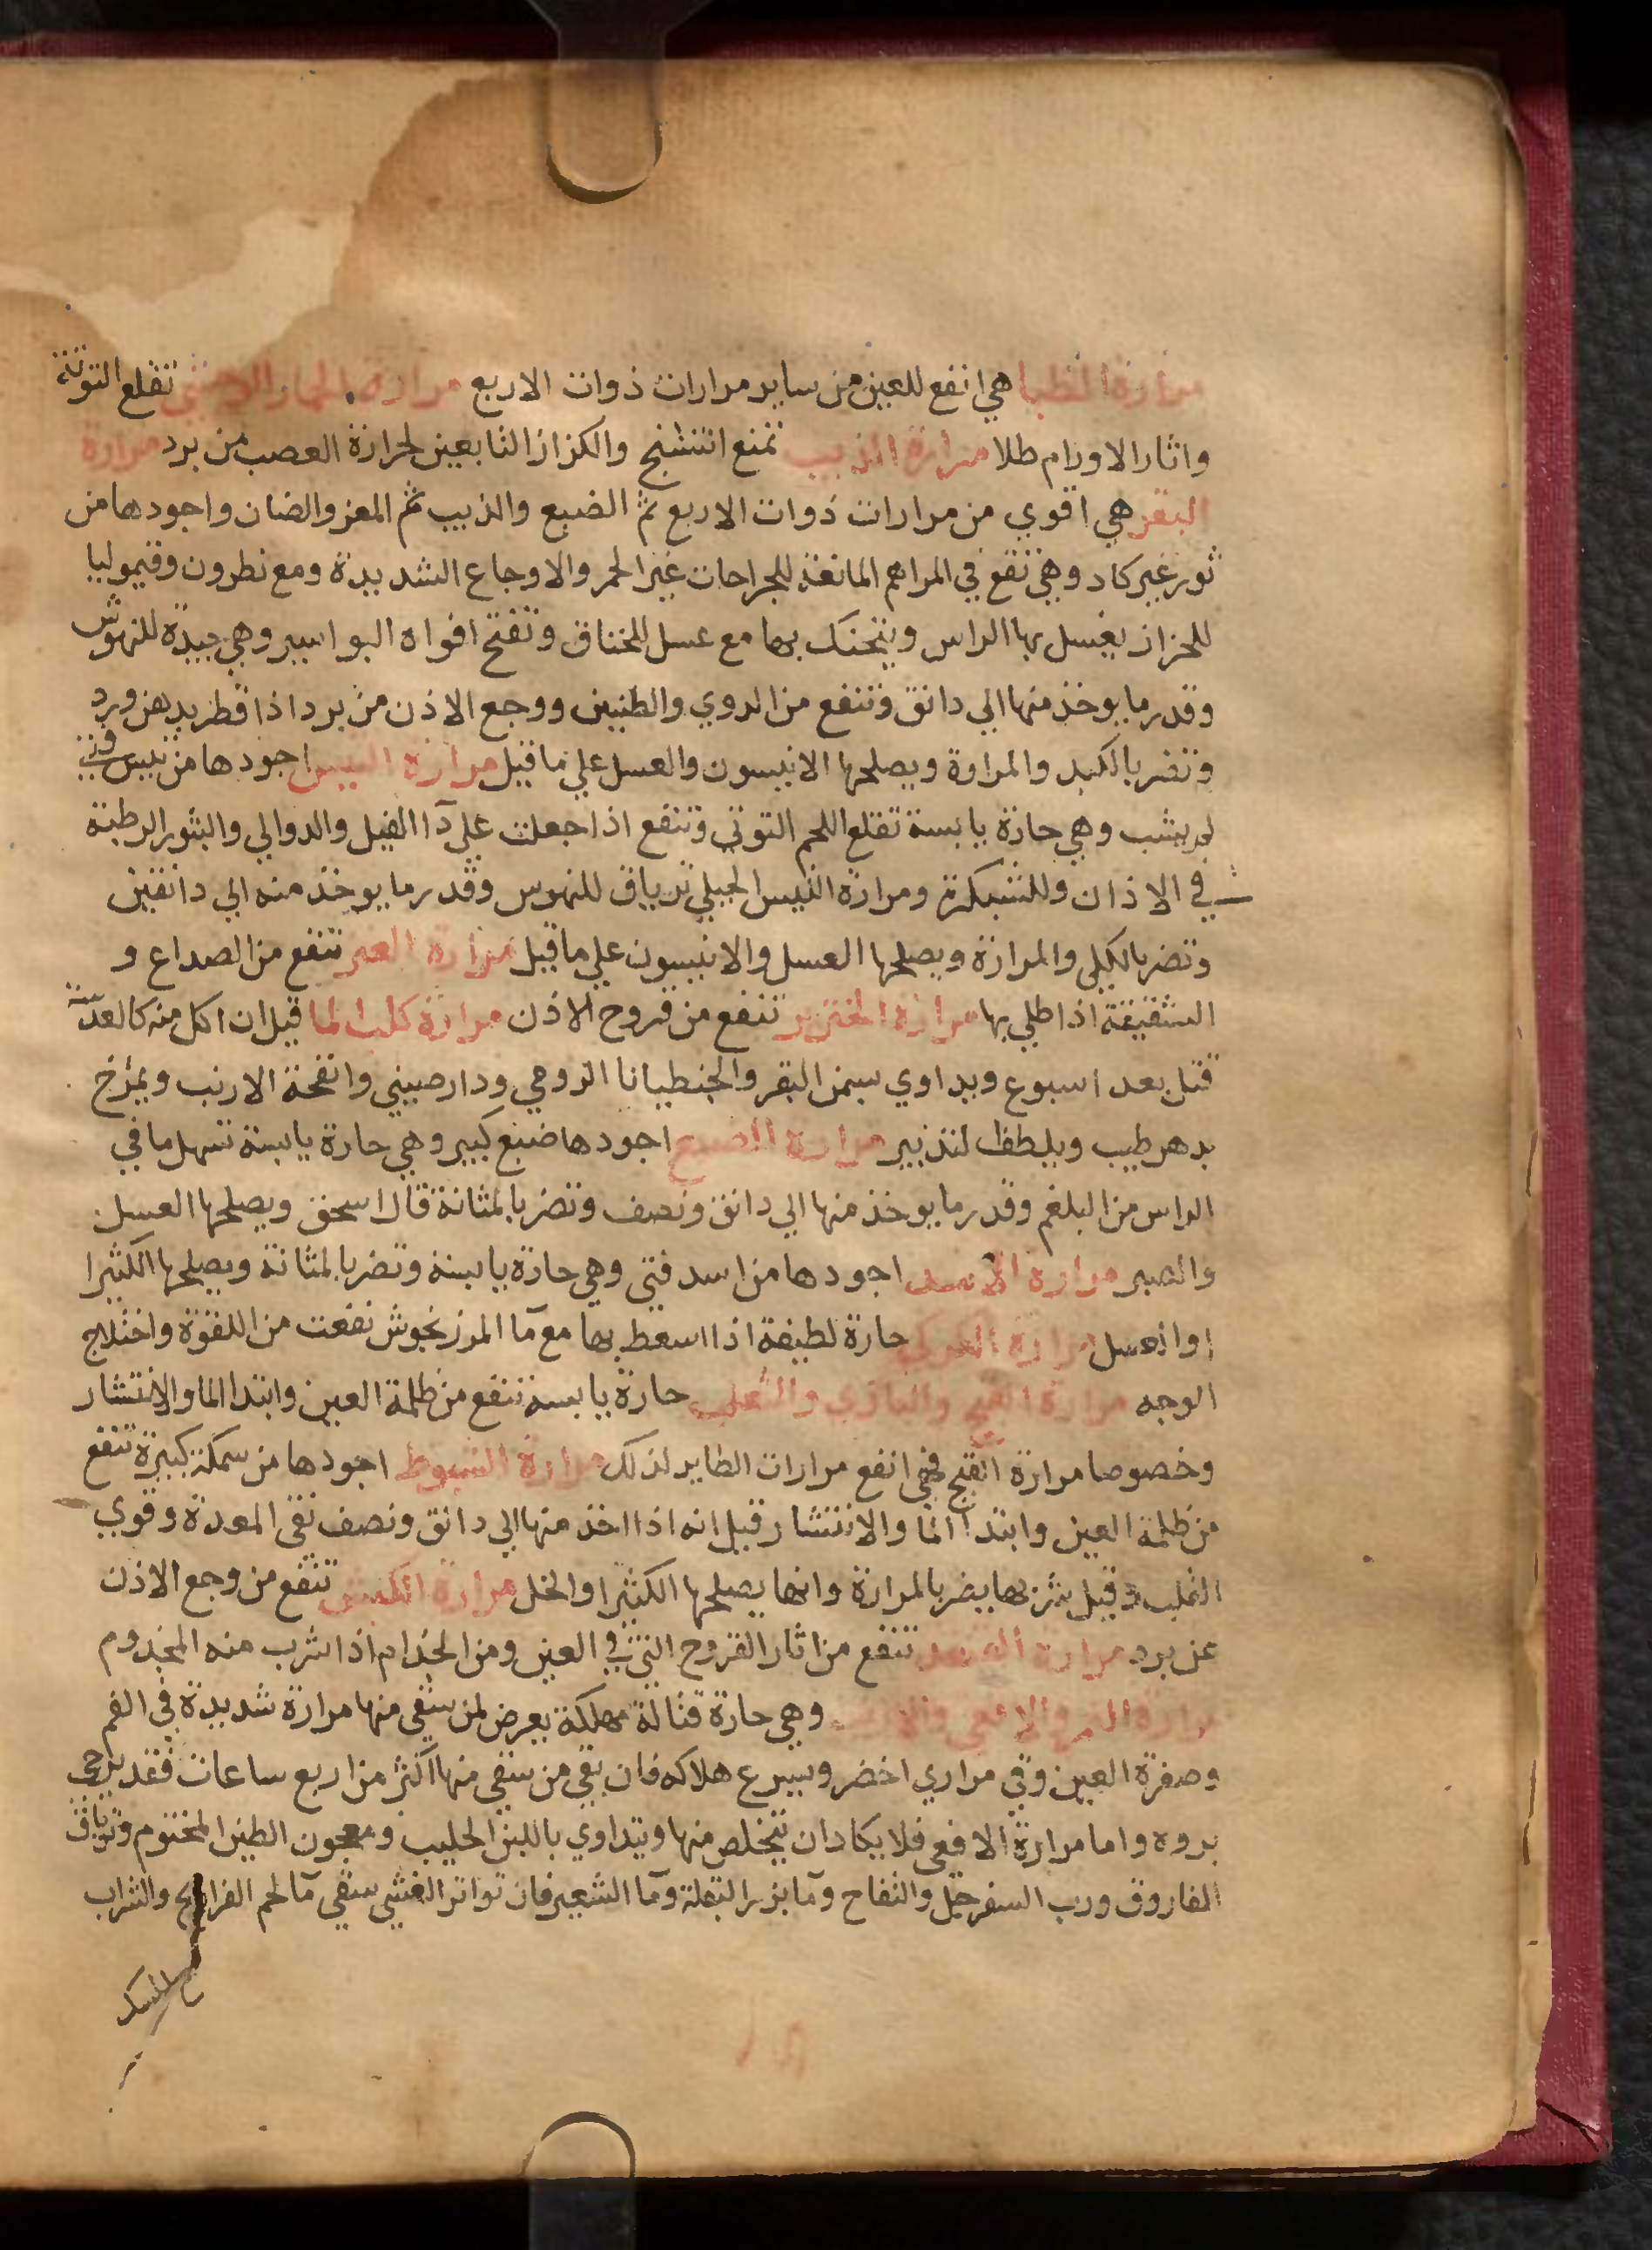 مرارة الظبا هي انفع للعين من ساير مرارات ذوات الاربع مرارة الحمار الوحشي تقلع التوتة
واثار الاورام طلا مرارة الذيب تمنع التشنج والكزاز التابعين لحرارة العصب من برد مرارة
البقر هي اقوي من مرارات ذوات الاربع ثم الضبع والذيب ثم المعز والضان واجودها من
ثور غير كاد وهي تقع في المراهم المانعة للجراحات غير الحمر والاوجاع الشديدة ومع نطرون وقيموليا
للحزاز يغسل بها الراس ويتحنك بها مع عسل للخناق وتفتح افواه البواسير وهي جيدة للنهوش
وقدر ما يوخذ منها الي دانق وتنفع من الدوي والطنين ووجع الاذن من برد اذا قطر بدهن ورد
وتضر بالكبد والمرارة ويصلحها الانيسون والعسل علي ما قيل مرارة التيس اجودها من تيس فتي
لم يشب وهي حارة يابسة تقلع اللحم التوتي وتنفع اذا جعلت علي دآ الفيل والدوالي والبثور الرطبة
في الاذان وللشبكرة ومرارة التيس الجبلي ترياق للنهوس وقدر ما يوخذ منه الي دانقين
وتضر بالكلي والمرارة ويصلحها العسل والانيسون علي ما قيل مرارة تنفع من الصداع و
الشقيقة اذا طلي بها مرارة الخنزير تنفع من قروح الاذن مرارة كلب الما قيل ان اكل منه كالعدسة
قتل بعد اسبوع ويداوي بسمن البقر والجنطيانا الرومي ودارصيني وانفحة الارنب ويمرخ
بدهن طيب ويلطف لتدبير مرارة الضبع اجودها ضبع كبير وهي حارة يابسة تسهل ما في
الراس من البلغم وقدر ما يوخذ منها الي دانق ونصف وتضر بالمثانة قال اسحق ويصلحها العسل
والصبر مرارة الاسد اجودها من اسد فتي وهي حارة يابسة وتضر بالمثانة ويصلحها الكثيرا
او العسل مرارة الكركي حارة لطيفة اذا اسعط بها مع مآ المرزنجوش نفعت من اللقوة واختلاج
الوجه مرارة القبج والبازي والثعلب حارة يابسة تنفع من ظلمة العين وابتدا الما والانتشار
وخصوصا مرارة القبج فهي انفع مرارات الطاير لذلك مرارة الشبوط اجودها من سمكة كبيرة تنفع
من ظلمة العين وابتدآ الما والانتشار قيل انه اذا اخذ منها الي دانق ونصف نقي المعدة وقوي
القلب وقيل شربها يضر بالمرارة وانها يصلحها الكثيرا والخل مرارة الكبش تنفع من وجع الاذن
عن برد مرارة تنفع من اثار القروح التي في العين ومن الجذام اذا شرب منه المجذوم
مرارة النمر والافعي وهي حارة قتالة مهلكة يعرض لمن سقي منها مرارة شديدة في الفم
وصفرة العين وقي مراري اخضر ويسرع هلاكه فان بقي من سقي منها اكثر من اربع ساعات فقد يرجي
بروه واما مرارة الافعي فلا يكاد ان يتخلص منها ويتداوي باللبن الحليب ومعجون الطين المختوم وترياق
الفاروق ورب السفرجل والتفاح ومآ بزر البقلة ومآ الشعير فان تواتر الغشي سقي مآ لحم الفراريج والشراب